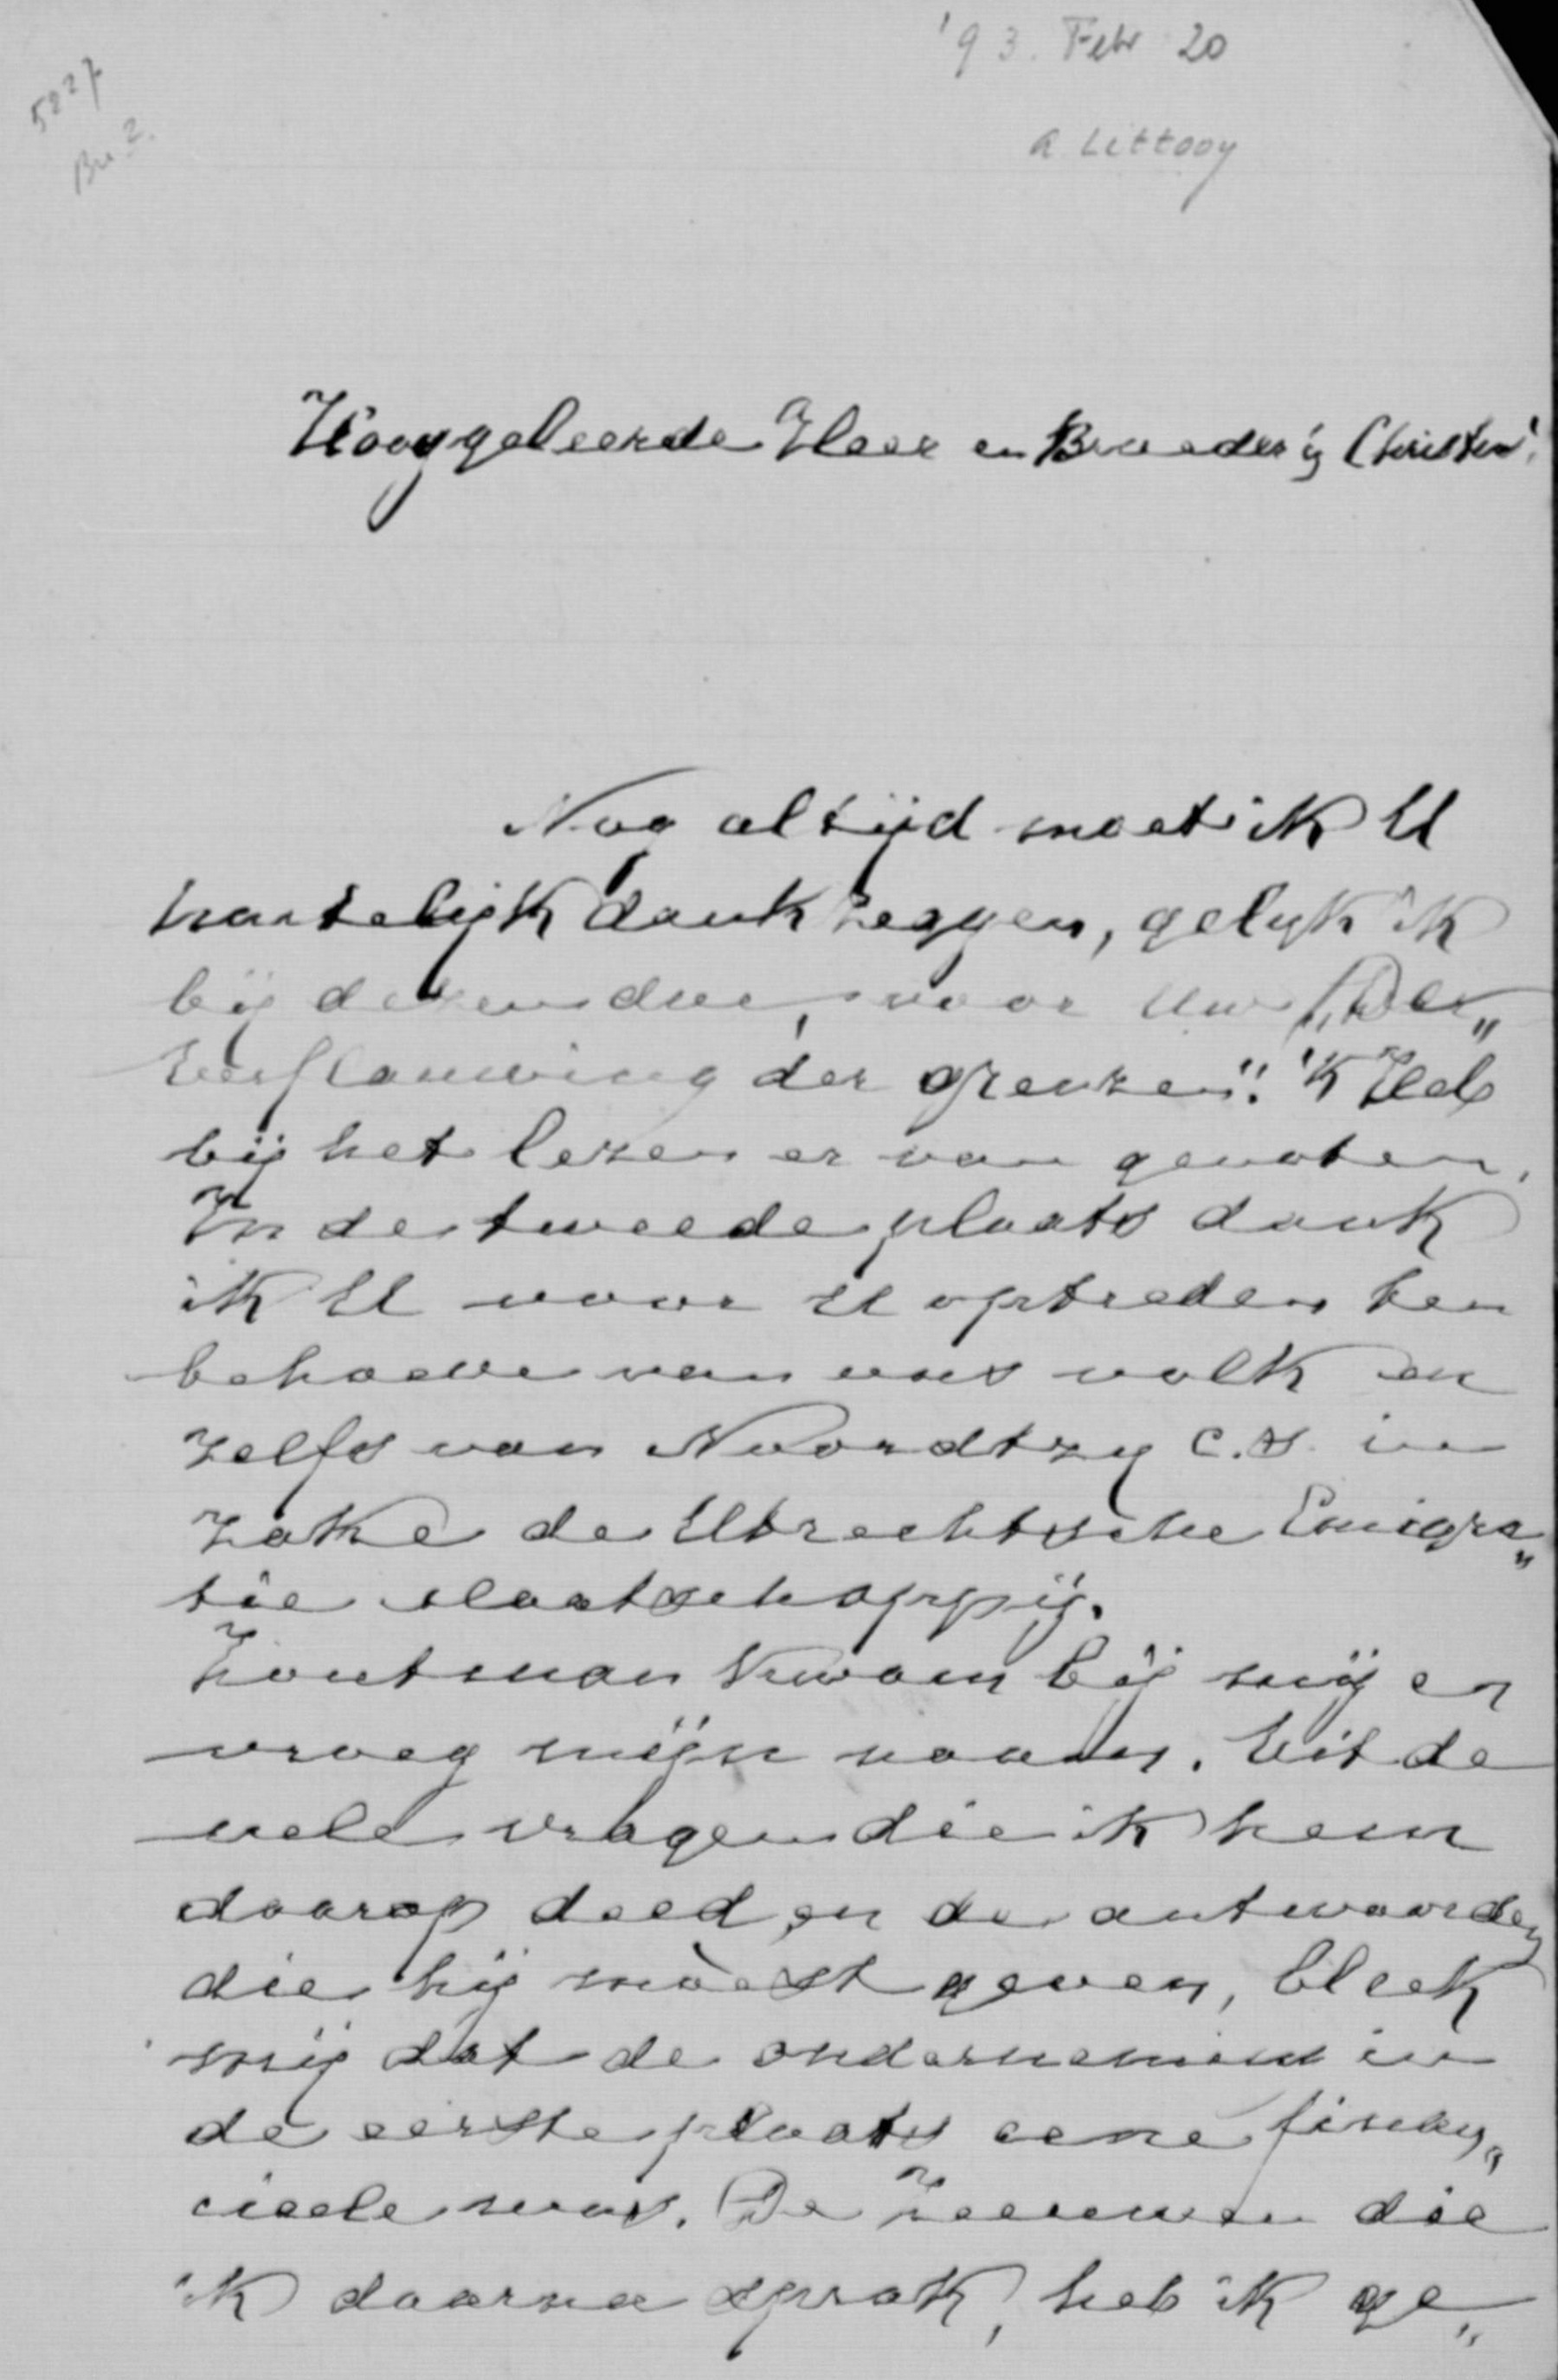 '93. Febr 20
5227
Br. 2.
A. Littooy
Hooggeleerde Heer en Broeder in Christus!
Nog altijd moet ik U
hartelijk dank zeggen, gelijk ik
bij dezen doe, voor Uw „De„
Verflauwing der grenzen". 'k Heb
bij het lezen er van genoten.
In de tweede plaats dank
ik U voor U optreden ten
behoeve van ons volk en
zelfs van Noordtzy c.s. in
zake de Utrechtsche Emigra„
tie Maatschappij.
Houtman kwam bij mij en
vroeg mijn naam. Uit de
vele vragen die ik hem
daarop deed, en de antwoorden
die hij moest geven, bleek
mij dat de onderneming in
de eerste plaats eene finan„
cieele was. De Zeeuwen die
ik daarna sprak, heb ik ge„